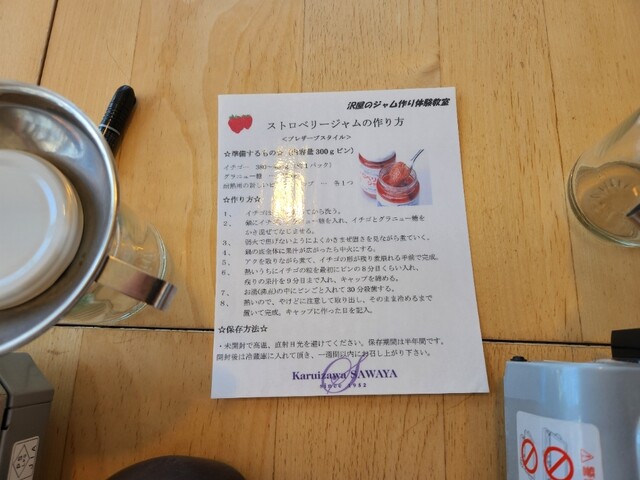 沢屋のジャム作り体験教室
ストロベリージャムの作り方
<プレザーブスタイル>
☆準備するもの☆ 内容量300gビン)
イチゴ
1パック)
グラニュー糖
各1つ
☆作り方☆
1、 イチゴは 洗う。
2、 鍋にイチゴ ュー糖を入れ、イチゴとグラニュー糖を
かき混ぜてなじませる。
3、 弱火で焦げないようによくかきまぜ固さを見ながら煮ていく。
4、 鍋の底全体に果汁が広がったら中火にする。
5、 アクを取りながら煮て、イチゴの形が残り煮崩れる手前で完成。
6、 熱いうちにイチゴの粒を最初にビンの8分目くらい入れ、
残りの果汁を9分目まで入れ、キャップを締める。
7、 お湯(沸点)の中にビンごと入れて30分殺菌する。
8、 熱いので、やけどに注意して取り出し、そのまま冷めるまで
置いて完成。キャップに作った日を記入。
☆保存方法☆
・未開封で高温、直射日光を避けてください。保存期間は半年間です。
開封後は冷蔵庫に入れて頂き、一週間以内にお召し上がり下さい。
Karuizawa SAWAYA
SINCE 1952